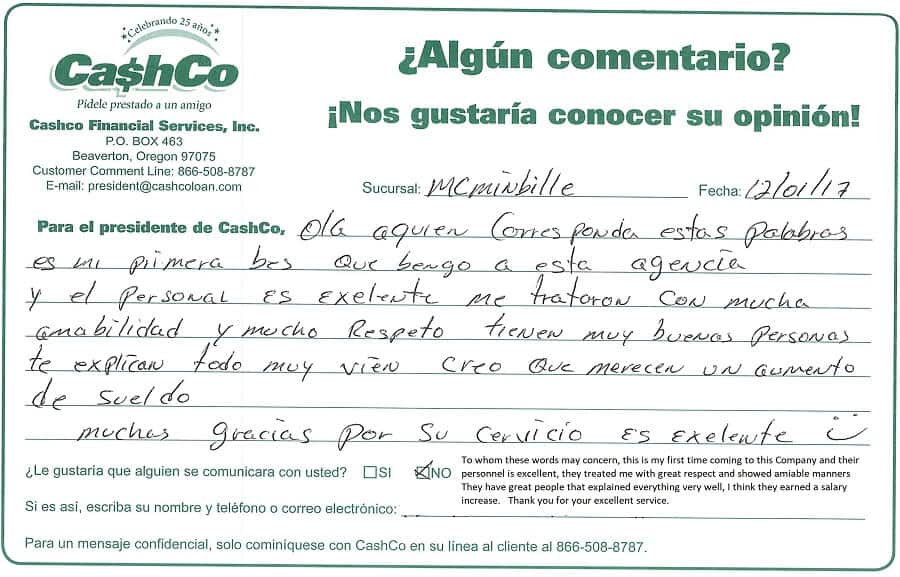 Celebrando 25 años
Ca$hCo
Pídele prestado a un amigo
Cashco Financial Services, Inc.
P.O. BOX 463
Beaverton, Oregon 97075
Customer Comment Line: 866-508-8787
E-mail: president@cashcoloan.com
¿Algún comentario?
¡Nos gustaría conocer su opinión!
Sucursal: MCminbille Fecha: 12/01/17
Para el presidente de CashCo, Ola aquien Corresponda estas Palabras
es mi primera bes que bengo a esta agencia
y el Personal es exelente me trataron con mucha
amabilidad y mucho Respeto tienen muy buenas Personas
te explican todo muy vien creo que merecen un aumento
de sueldo
muchas gracias por su cervicio es exelente
¿Le gustaria que alguien se comunicara con usted? SI NO
To whom these words may concern, this is my first time coming to this Company and their
personnel is excellent, they treated me with great respect and showed amiable manners
They have great people that explained everything very well, I think they earned a salary
increase. Thank you for your excellent service.
Si es así, escriba su nombre y teléfono o correo electrónico:
Para un mensaje confidencial, solo comíniquese con CashCo en su línea al cliente al 866-508-8787.